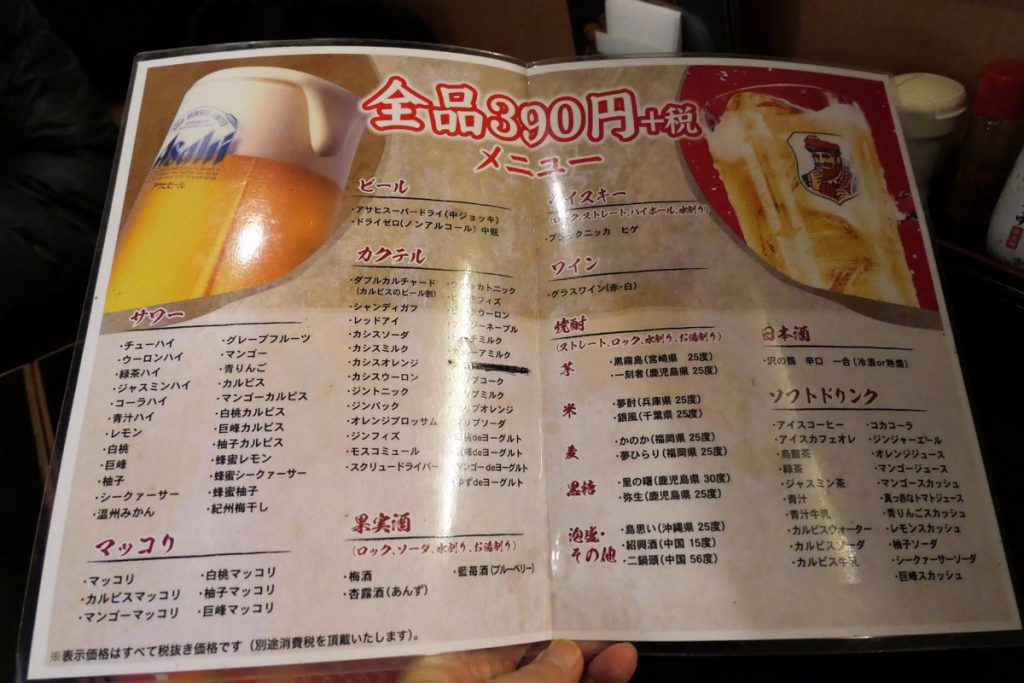 Asahi
アサヒビール
全品390円+税
メニュー
ビール
・アサヒスーパードライ(中ジョッキ)
・ドライゼロ(ノンアルコール) 中瓶
カクテル
・ダブルカルチャード
(カルピスのビール割)
・シャンディガフ
・レッドアイ
・カシスソーダ
・カシスミルク
・カシスオレンジ
・カシスウーロン
・ジントニック
・ジンバック
・オレンジブロッサム
・ジンフィズ
・モスコミュール
・スクリュードライバー
deヨーグルト
deヨーグルト
マンゴーdeヨーグルト
ゆずdeヨーグルト
サワー
・チューハイ
・ウーロンハイ
・緑茶ハイ
・ジャスミンハイ
・コーラハイ
・青汁ハイ
・レモン
・白桃
・巨峰
・柚子
・シークァーサー
・温州みかん
・グレープフルーツ
・マンゴー
・青りんご
・カルピス
・マンゴーカルピス
・白桃カルピス
・巨峰カルピス
・柚子カルピス
・蜂蜜レモン
・蜂蜜シークァーサー
・蜂蜜柚子
・紀州梅干し
マッコリ
・マッコリ
・カルピスマッコリ
・マンゴーマッコリ
・白桃マッコリ
・柚子マッコリ
・巨峰マッコリ
果実酒
(ロック、ソーダ、水割り、お湯割り)
・梅酒
・杏露酒(あんず)
・藍苺酒(ブルーベリー)
※表示価格はすべて税抜き価格です（別途消費税を頂戴いたします）。
(ロック、ストレート、ハイボール、水割り)
・ブラックニッカ ヒゲ
ワイン
・グラスワイン(赤・白)
焼酎
(ストレート、ロック、水割り、お湯割り)
芋
・黒霧島(宮崎県 25度)
・一刻者(鹿児島県 25度)
米
・夢酎(兵庫県 25度)
・銀風(千葉県 25度)
麦
・かのか(福岡県 25度)
・夢ひらり(福岡県 25度)
黒糖
・里の曙(鹿児島県 30度)
・弥生(鹿児島県 25度)
泡盛・
その他
・島思い(沖縄県 25度)
・紹興酒(中国 15度)
・二鍋頭(中国 56度)
日本酒
・沢の鶴 辛口 一合(冷酒or熱燗)
ソフトドリンク
・アイスコーヒー
・アイスカフェオレ
・烏龍茶
・緑茶
・ジャスミン茶
・青汁
・青汁牛乳
・カルピスウォーター
・カルピスソーダ
・カルピス牛乳
・コカコーラ
・ジンジャーエール
・オレンジジュース
・マンゴージュース
・マンゴースカッシュ
・真っ赤なトマトジュース
・青りんごスカッシュ
・レモンスカッシュ
・柚子ソーダ
・シークァーサーソーダ
・巨峰スカッシュ